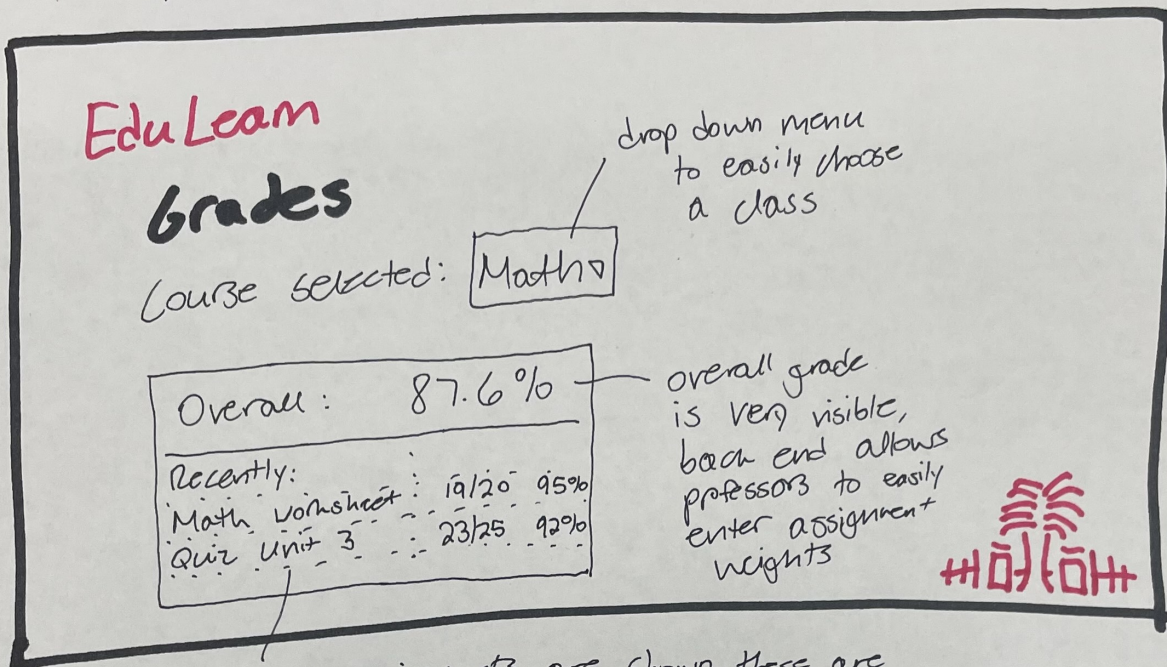 EduLearn
Grades
drop down menu
to easily choose
a class
Course selected: Math
Overall: 87.6%
Recently:
Math worksheet : 19/20 95%
Quiz Unit 3 : 23/25 92%
overall grade
is very visible,
back end allows
professors to easily
enter assignment
weights
are shown these are